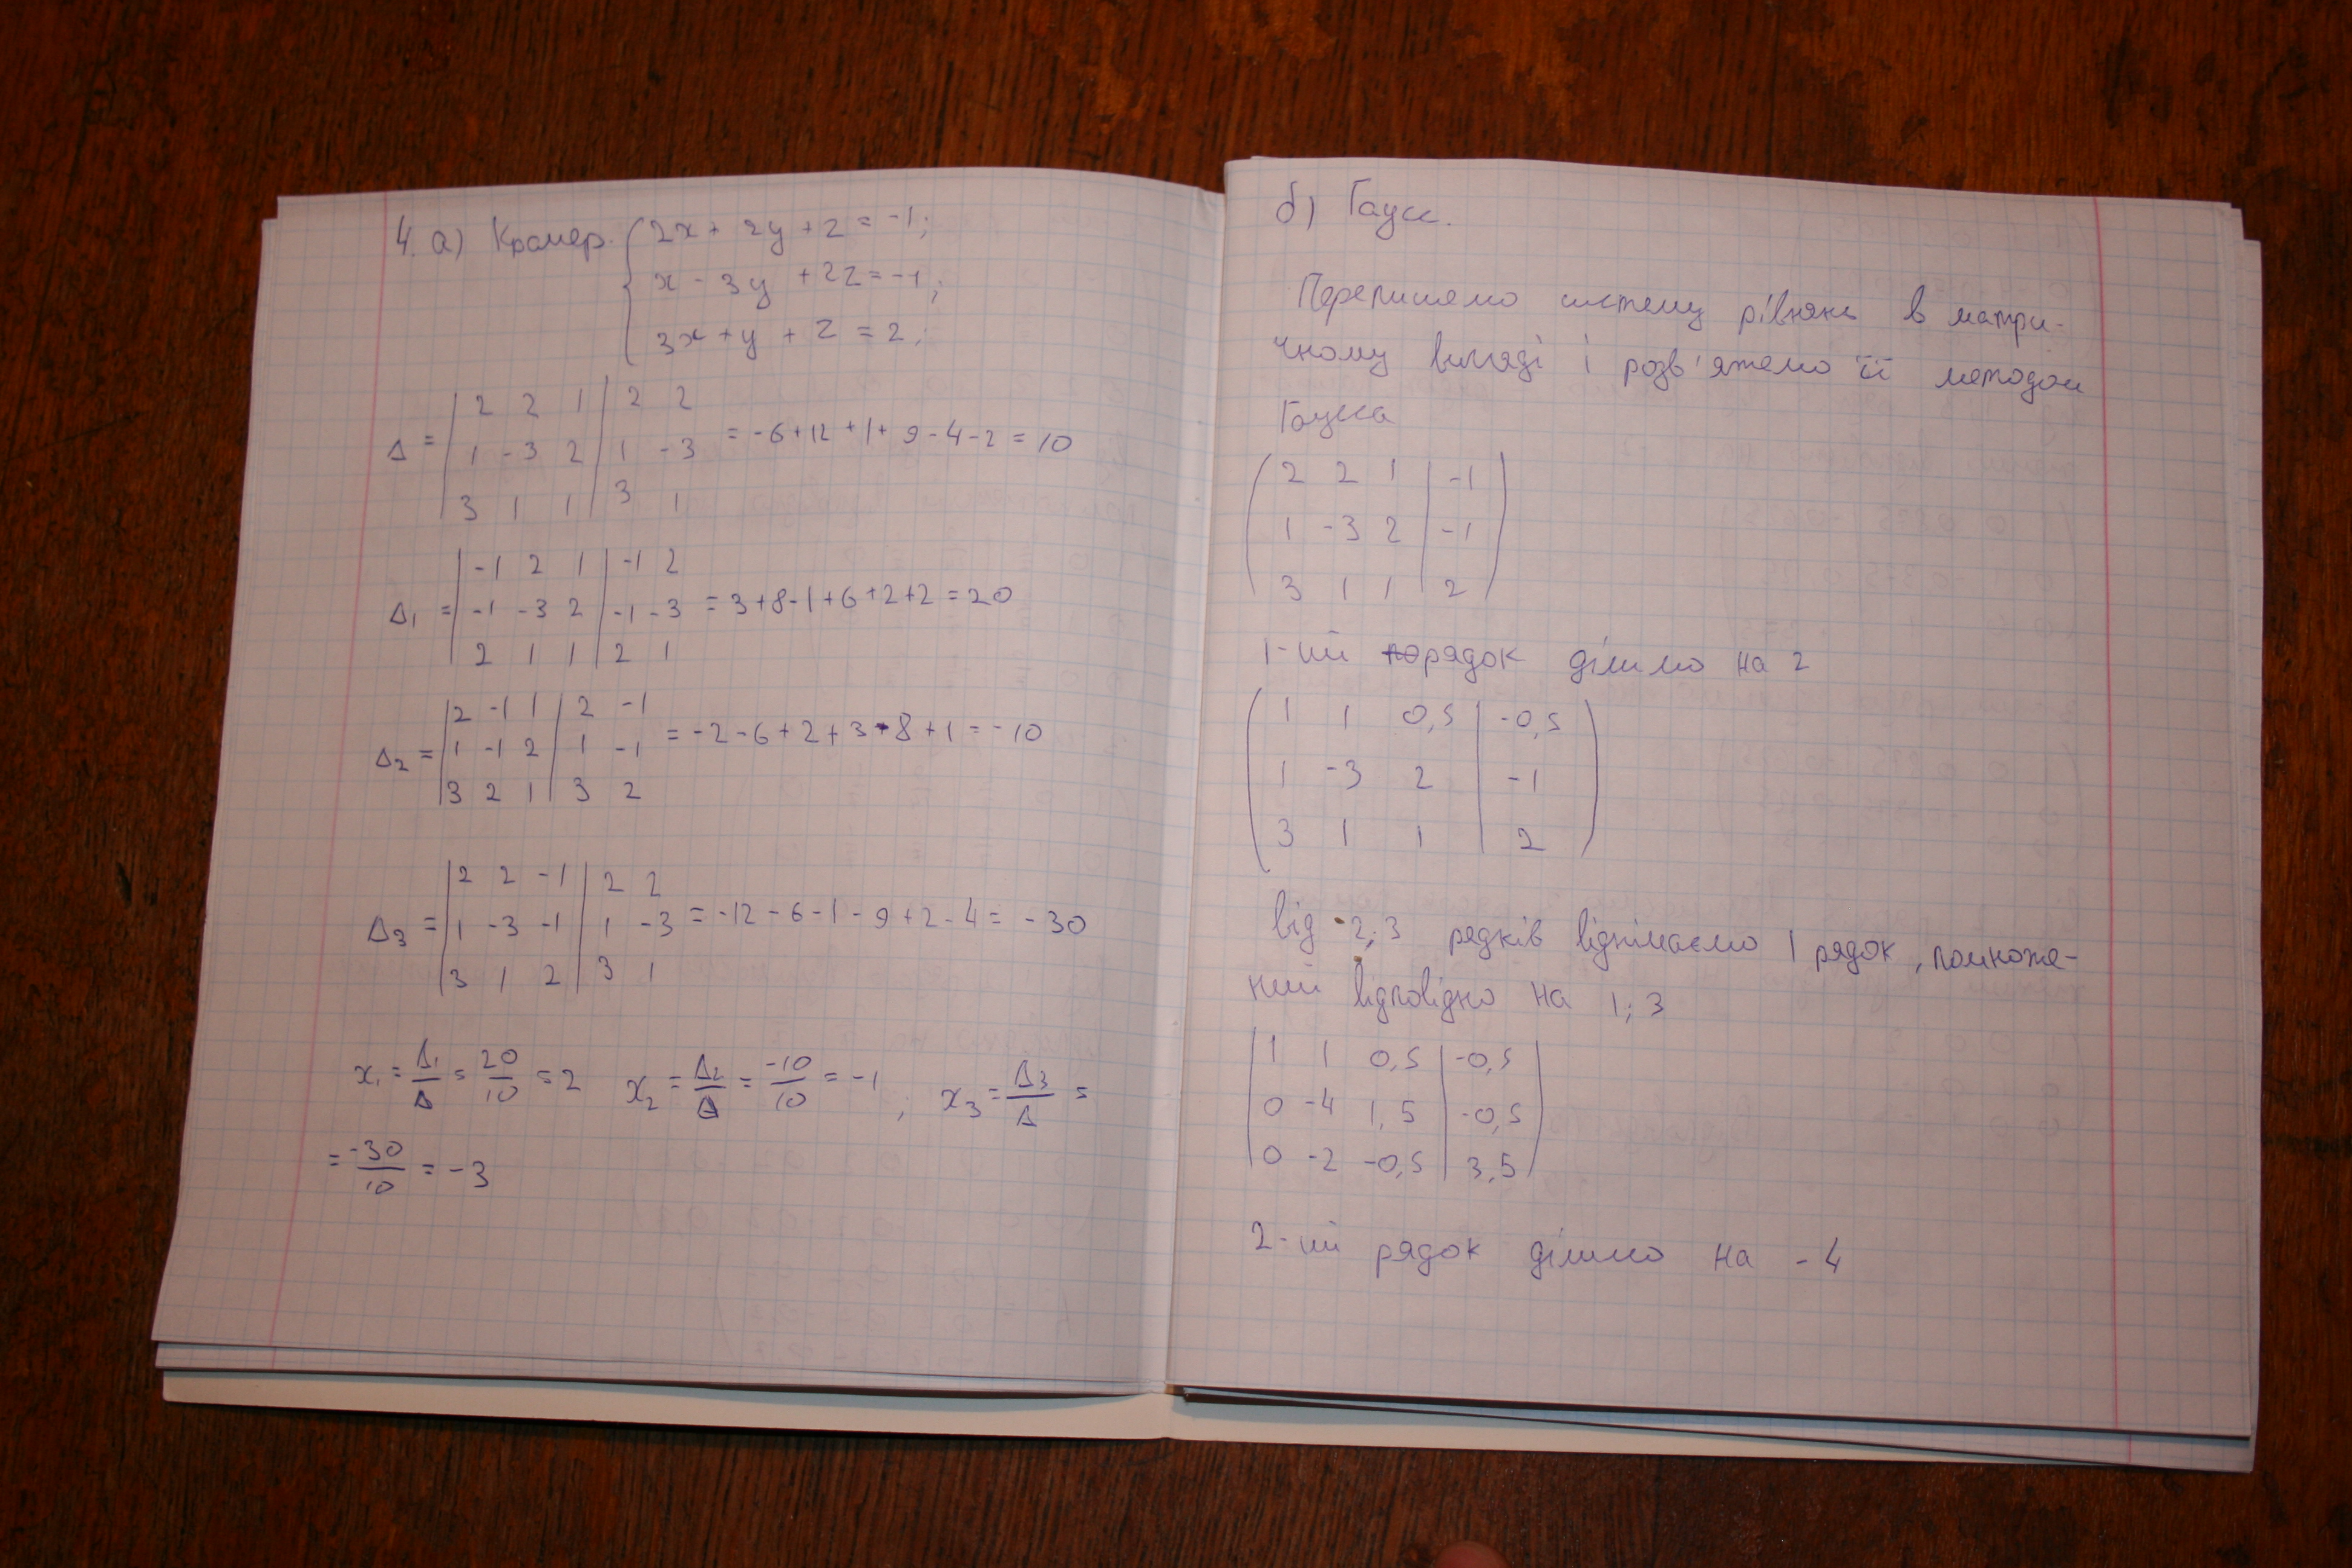 4. а) Крамер. { 2x + 2y + z = -1;
x - 3y + 2z = -1;
3x + y + z = 2;
Δ = | 2 2 1 | 2 2
1 -3 2 | 1 -3 = -6+12+1+9-4-2 = 10
3 1 1 | 3 1
Δ₁ = | -1 2 1 | -1 2
-1 -3 2 | -1 -3 = 3+8-1+6+2+2 = 20
2 1 1 | 2 1
Δ₂ = | 2 -1 1 | 2 -1
1 -1 2 | 1 -1 = -2-6+2+3-8+1 = -10
3 2 1 | 3 2
Δ₃ = | 2 2 -1 | 2 2
1 -3 -1 | 1 -3 = -12-6-1-9+2-4 = -30
3 1 2 | 3 1
x₁ = Δ₁/Δ = 20/10 = 2 x₂ = Δ₂/Δ = -10/10 = -1; x₃ = Δ₃/Δ =
= -30/10 = -3
б) Гаусс.
Перепишемо систему рівнянь в матри-
чному вигляді і розв'яжемо її методом
Гаусса
( 2 2 1 | -1 )
( 1 -3 2 | -1 )
( 3 1 1 | 2 )
1-ий рядок ділимо на 2
( 1 1 0,5 | -0,5 )
( 1 -3 2 | -1 )
( 3 1 1 | 2 )
від 2; 3 рядків віднімаємо 1 рядок, помноже-
ний відповідно на 1; 3
| 1 1 0,5 | -0,5 |
| 0 -4 1,5 | -0,5 |
| 0 -2 -0,5 | 3,5 |
2-ий рядок ділимо на -4